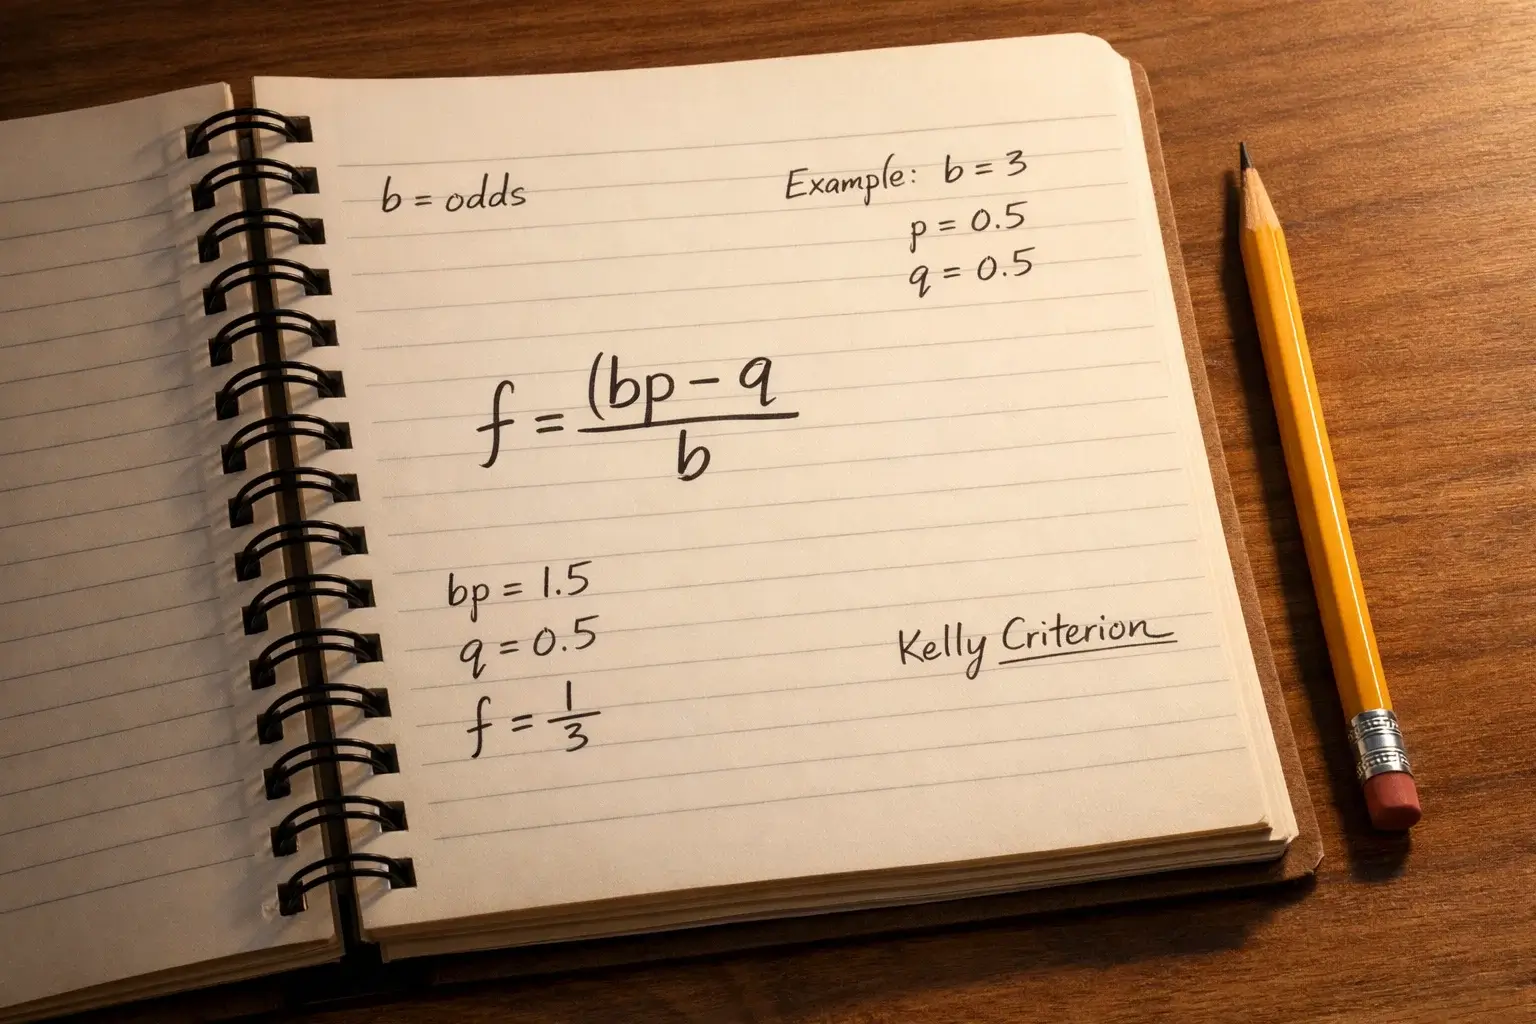 b = odds
Example: b = 3
p = 0.5
q = 0.5
f = (bp − q
b
bp = 1.5
q = 0.5
f = 1/3
Kelly Criterion